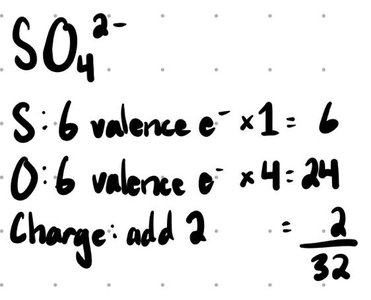 SO₄²⁻
S: 6 valence e⁻ ×1 = 6
O: 6 valence e⁻ ×4 = 24
Charge: add 2 = 2
32